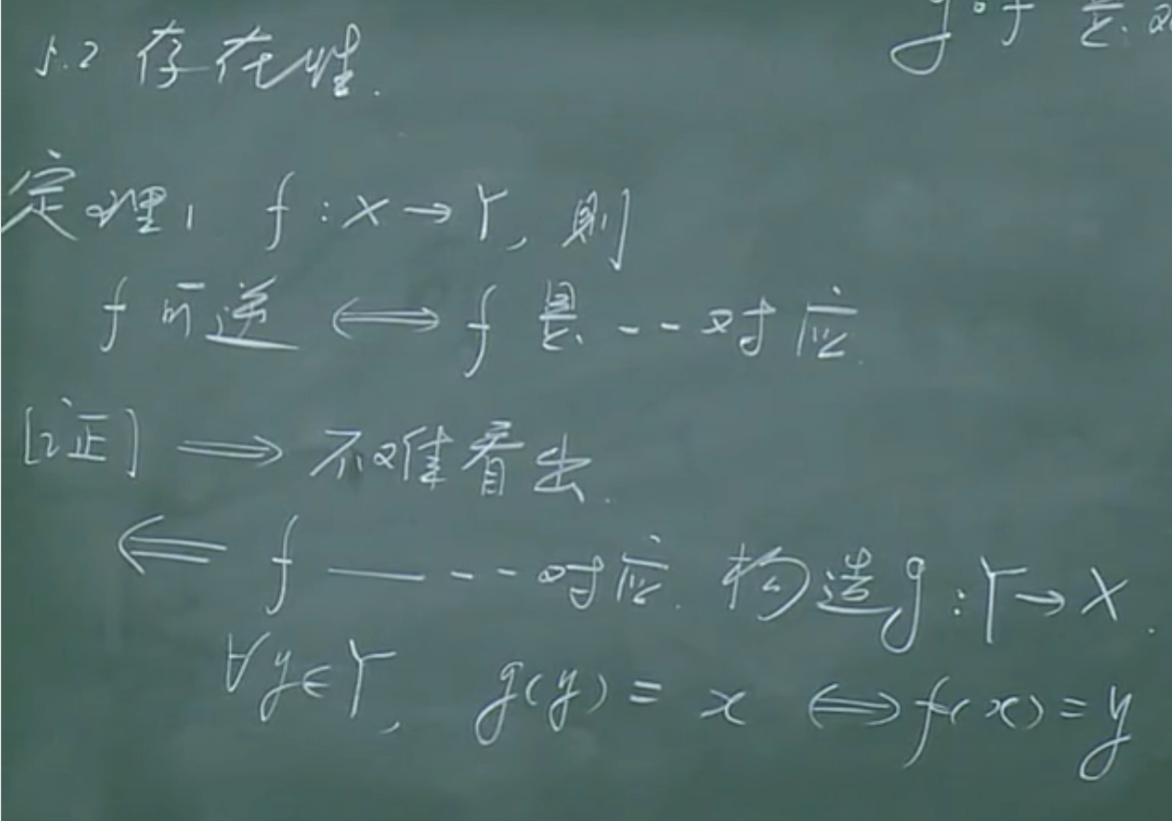 g∘f 是
5.2 存在性.
定理1 f:X→Y, 则
f 可逆 ⟺ f 是一一对应.
[证] ⟹ 不难看出.
⟸ f —— 一一对应. 构造g:Y→X.
∀y∈Y, g(y)=x ⟺ f(x)=y